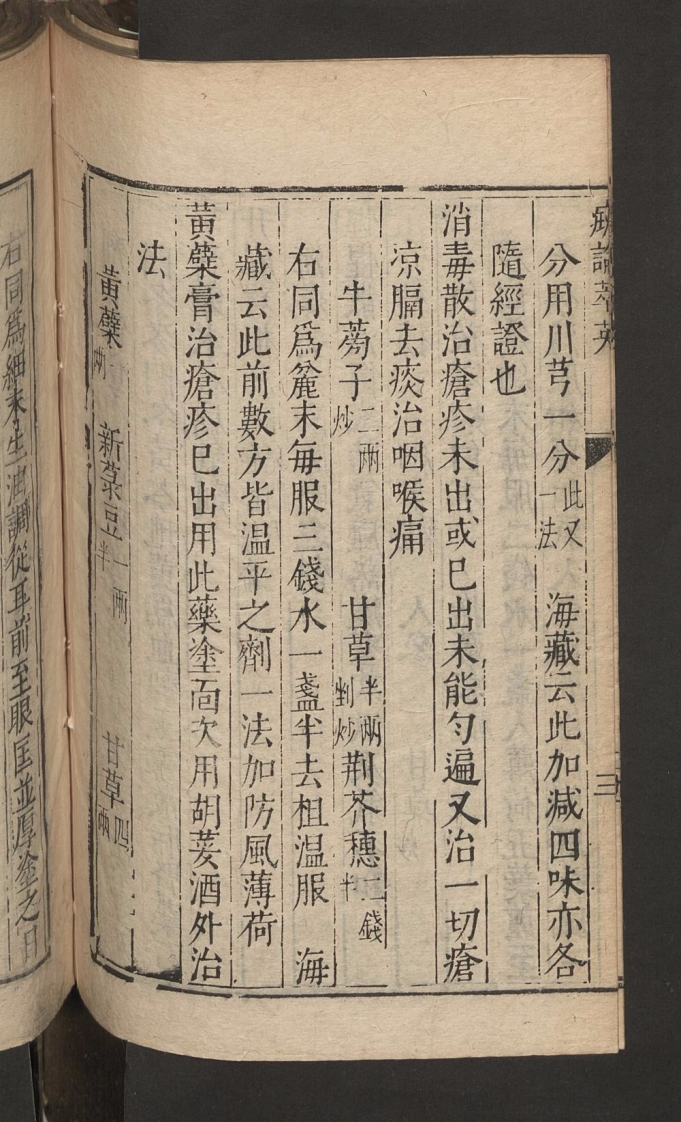 癍論萃英
三
分用川芎一分此又一法 海藏云此加減四味亦各
隨經證也
消毒散治瘡疹未出或已出未能勻遍又治一切瘡
凉膈去痰治咽喉痛
牛蒡子二兩炒 甘草半兩剉炒 荆芥穗二錢半
右同爲麄末每服三錢水一盞半去柤溫服 海
藏云此前數方皆温平之劑一法加防風薄荷
黃蘗膏治瘡疹已出用此藥塗面次用胡荽酒外治
法
黃蘗一兩 新菉豆一兩半 甘草四兩
右同爲細末生油調從耳前至眼匡並厚塗之日